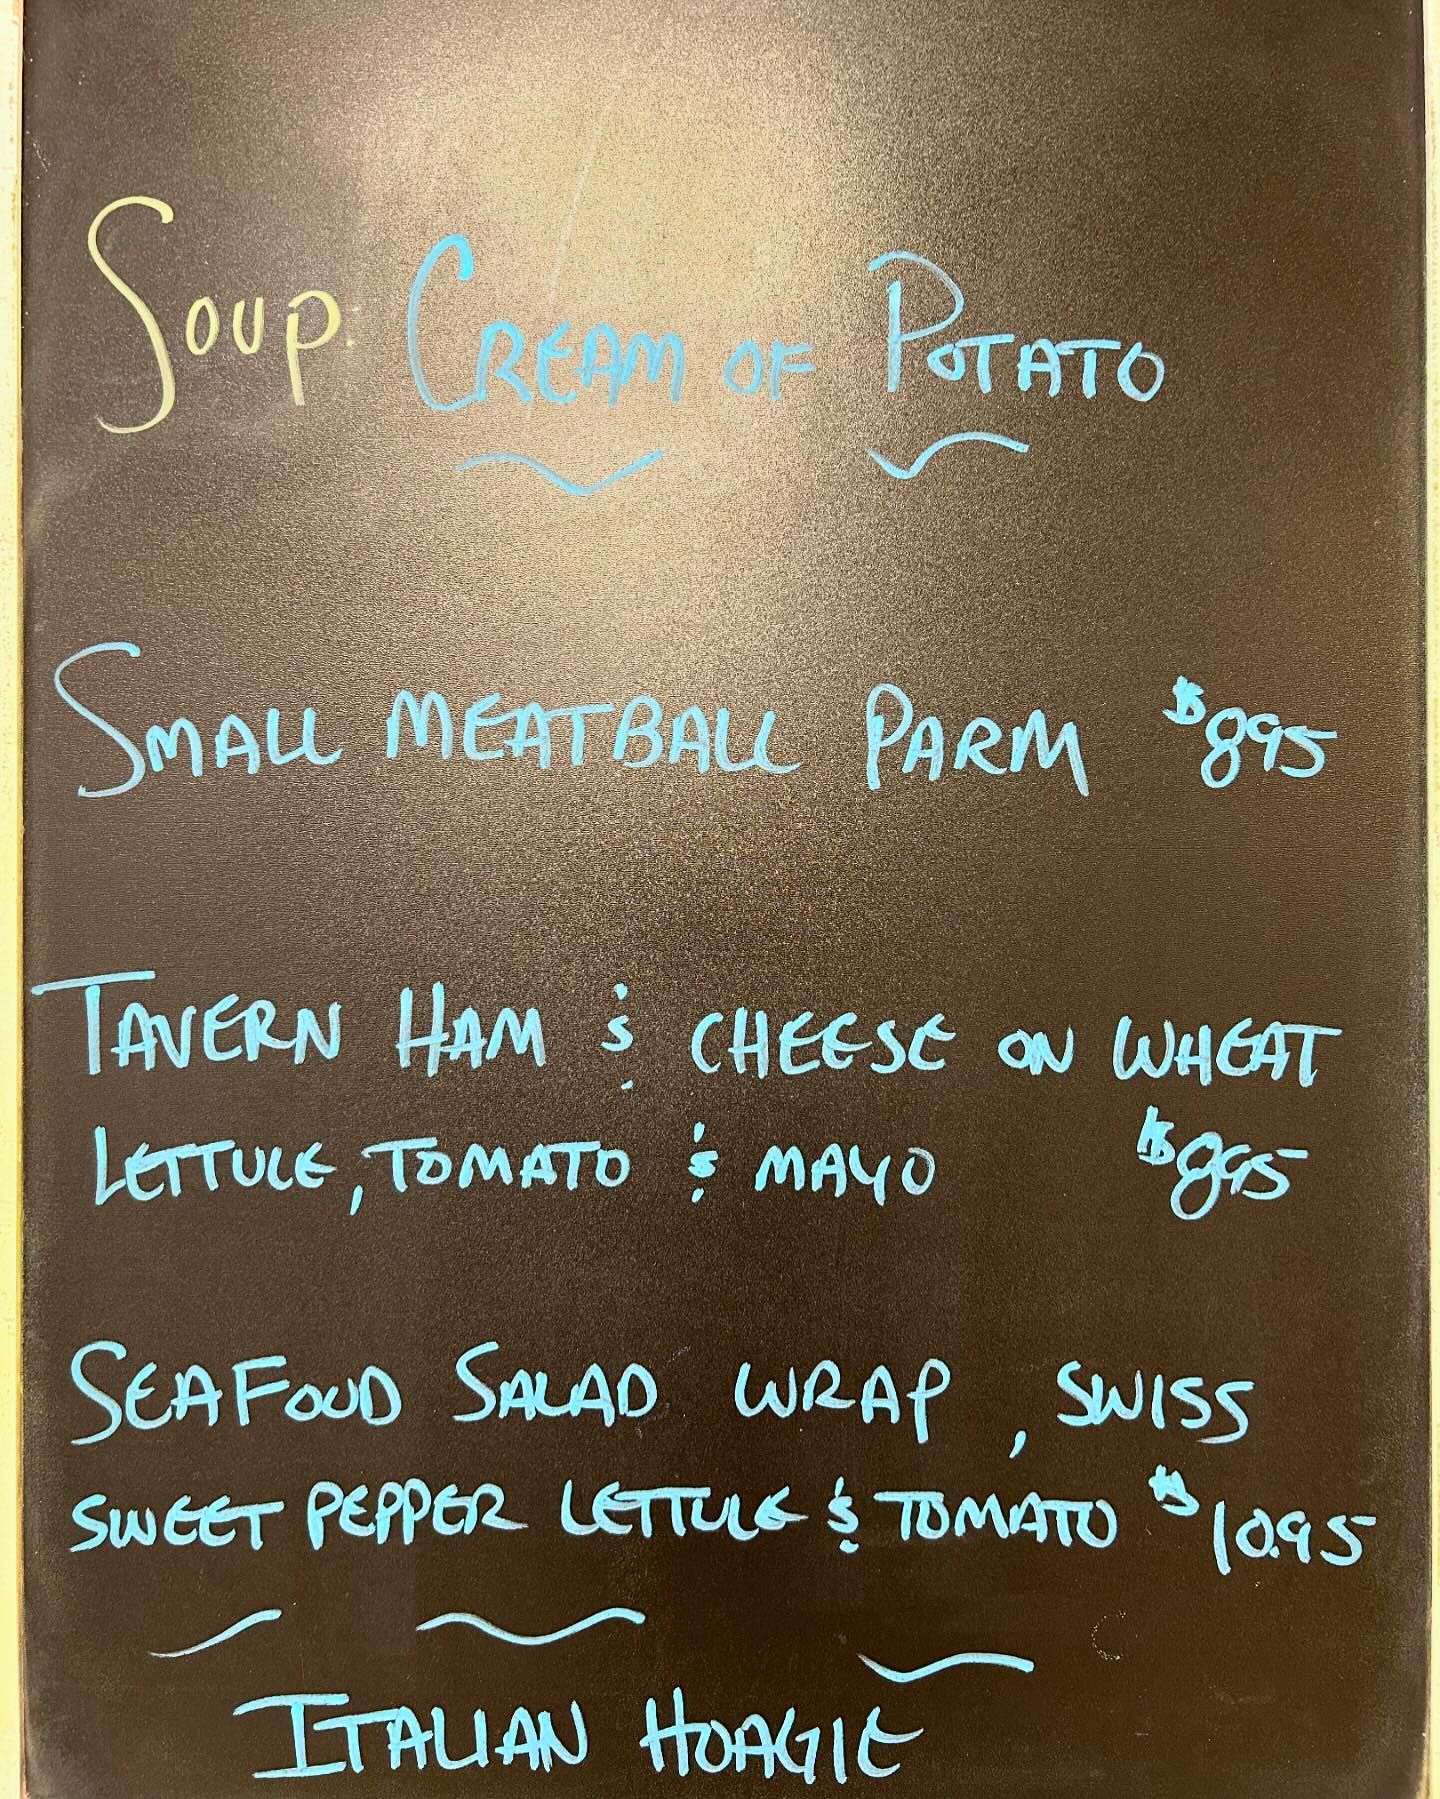 Soup: CREAM OF POTATO
SMALL MEATBALL PARM $895
TAVERN HAM & CHEESE ON WHEAT
LETTUCE, TOMATO & MAYO $895
SEAFOOD SALAD WRAP, SWISS
SWEET PEPPER LETTUCE & TOMATO $10.95
ITALIAN HOAGIE